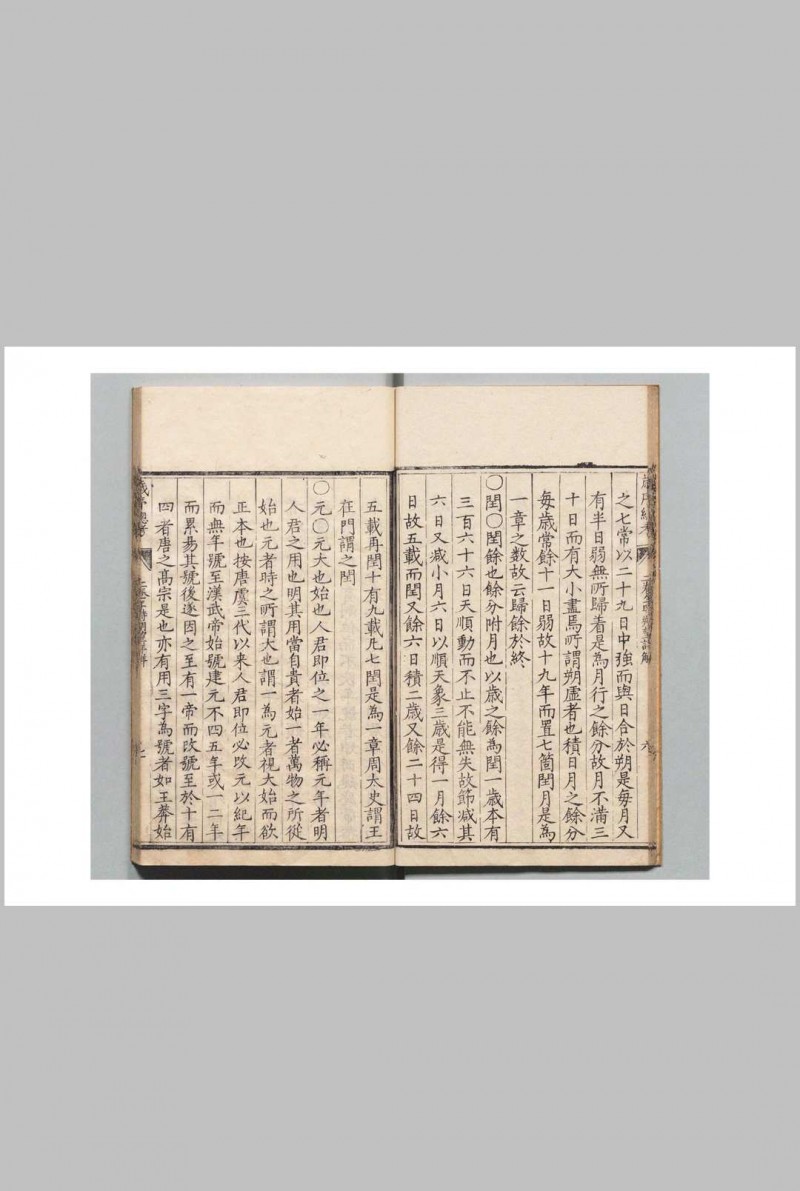 之七常以二十九日中強而與日合於朔是每月又
有半日弱無所歸着是為月行之餘分故月不滿三
十日而有大小盡焉所謂朔虛者也積日月之餘分
每歲常餘十一日弱故十九年而置七箇閏月是為
一章之数故云歸餘於終
○閏○閏餘也餘分附月也以歲之餘為閏一歲本有
三百六十六日天順動而不止不能無失故節减其
六日又减小月六日以順天象三歲是得一月餘六
日故五載而閏又餘六日積二歲又餘二十四日故
五載再閏十有九載凡七閏是為一章周太史謂王
在門謂之閏
○元○元大也始也人君即位之一年必稱元年者明
人君之用也明其用當自貴者始一者萬物之所從
始也元者時之所謂大也謂一為元者視大始而欲
正本也按唐虞三代以来人君即位必改元以紀年
而無年號至漢武帝始號建元不四五年或一二年
而累易其號後遂因之至有一帝而改號至於十有
四者唐之髙宗是也亦有用三字為號者如王莽始